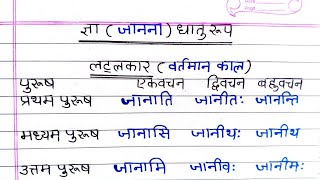 ज्ञा (जानना) धातु रूप
लट्लकार (वर्तमान काल)
पुरूष एकवचन द्विवचन बहुवचन
प्रथम पुरूष जानाति जानीतः जानन्ति
मध्यम पुरूष जानासि जानीथः जानीथ
उत्तम पुरूष जानामि जानीवः जानीमः